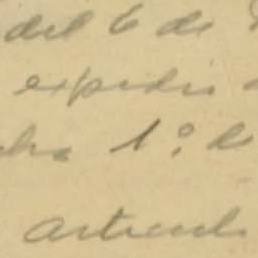 del 6 de
expedi
1º. de
articul